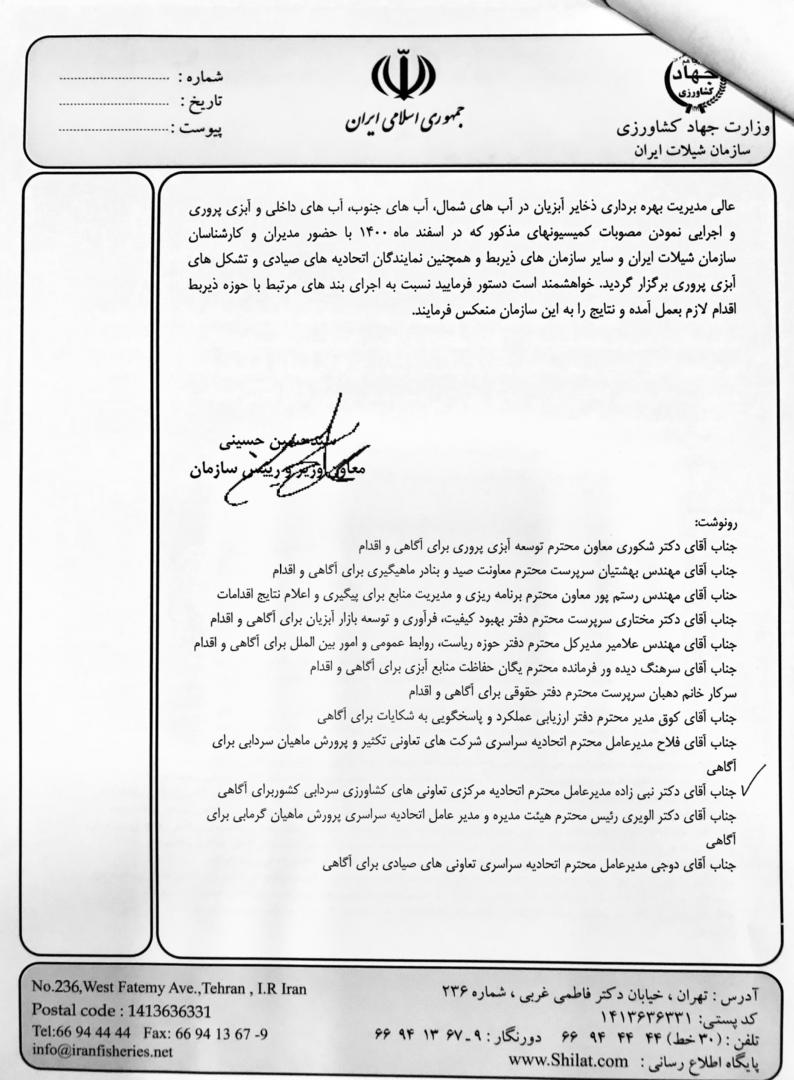 جهاد
کشاورزی
وزارت جهاد کشاورزی
سازمان شیلات ایران
جمهوری اسلامی ایران
شماره : ........................
تاریخ : ........................
پیوست : ........................
عالی مدیریت بهره برداری ذخایر آبزیان در آب های شمال، آب های جنوب، آب های داخلی و آبزی پروری
و اجرایی نمودن مصوبات کمیسیونهای مذکور که در اسفند ماه ۱۴۰۰ با حضور مدیران و کارشناسان
سازمان شیلات ایران و سایر سازمان های ذیربط و همچنین نمایندگان اتحادیه های صیادی و تشکل های
آبزی پروری برگزار گردید. خواهشمند است دستور فرمایید نسبت به اجرای بند های مرتبط با حوزه ذیربط
اقدام لازم بعمل آمده و نتایج را به این سازمان منعکس فرمایند.
سیدحسین حسینی
معاون وزیر و رییس سازمان
رونوشت:
جناب آقای دکتر شکوری معاون محترم توسعه آبزی پروری برای آگاهی و اقدام
جناب آقای مهندس بهشتیان سرپرست محترم معاونت صید و بنادر ماهیگیری برای آگاهی و اقدام
جناب آقای مهندس رستم پور معاون محترم برنامه ریزی و مدیریت منابع برای پیگیری و اعلام نتایج اقدامات
جناب آقای دکتر مختاری سرپرست محترم دفتر بهبود کیفیت، فرآوری و توسعه بازار آبزیان برای آگاهی و اقدام
جناب آقای مهندس علامیر مدیرکل محترم دفتر حوزه ریاست، روابط عمومی و امور بین الملل برای آگاهی و اقدام
جناب آقای سرهنگ دیده ور فرمانده محترم یگان حفاظت منابع آبزی برای آگاهی و اقدام
سرکار خانم دهبان سرپرست محترم دفتر حقوقی برای آگاهی و اقدام
جناب آقای کوق مدیر محترم دفتر ارزیابی عملکرد و پاسخگویی به شکایات برای آگاهی
جناب آقای فلاح مدیرعامل محترم اتحادیه سراسری شرکت های تعاونی تکثیر و پرورش ماهیان سردابی برای
آگاهی
جناب آقای دکتر نبی زاده مدیرعامل محترم اتحادیه مرکزی تعاونی های کشاورزی سردابی کشوربرای آگاهی
جناب آقای دکتر الویری رئیس محترم هیئت مدیره و مدیر عامل اتحادیه سراسری پرورش ماهیان گرمابی برای
آگاهی
جناب آقای دوجی مدیرعامل محترم اتحادیه سراسری تعاونی های صیادی برای آگاهی
آدرس : تهران ، خیابان دکتر فاطمی غربی ، شماره ۲۳۶
کد پستی: ۱۴۱۳۶۳۶۳۳۱
تلفن : (۳۰ خط) ۴۴ ۴۴ ۹۴ ۶۶ دورنگار : ۹ـ ۶۷ ۱۳ ۹۴ ۶۶
پایگاه اطلاع رسانی : www.Shilat.com
No.236,West Fatemy Ave.,Tehran , I.R Iran
Postal code : 1413636331
Tel:66 94 44 44 Fax: 66 94 13 67 -9
info@iranfisheries.net